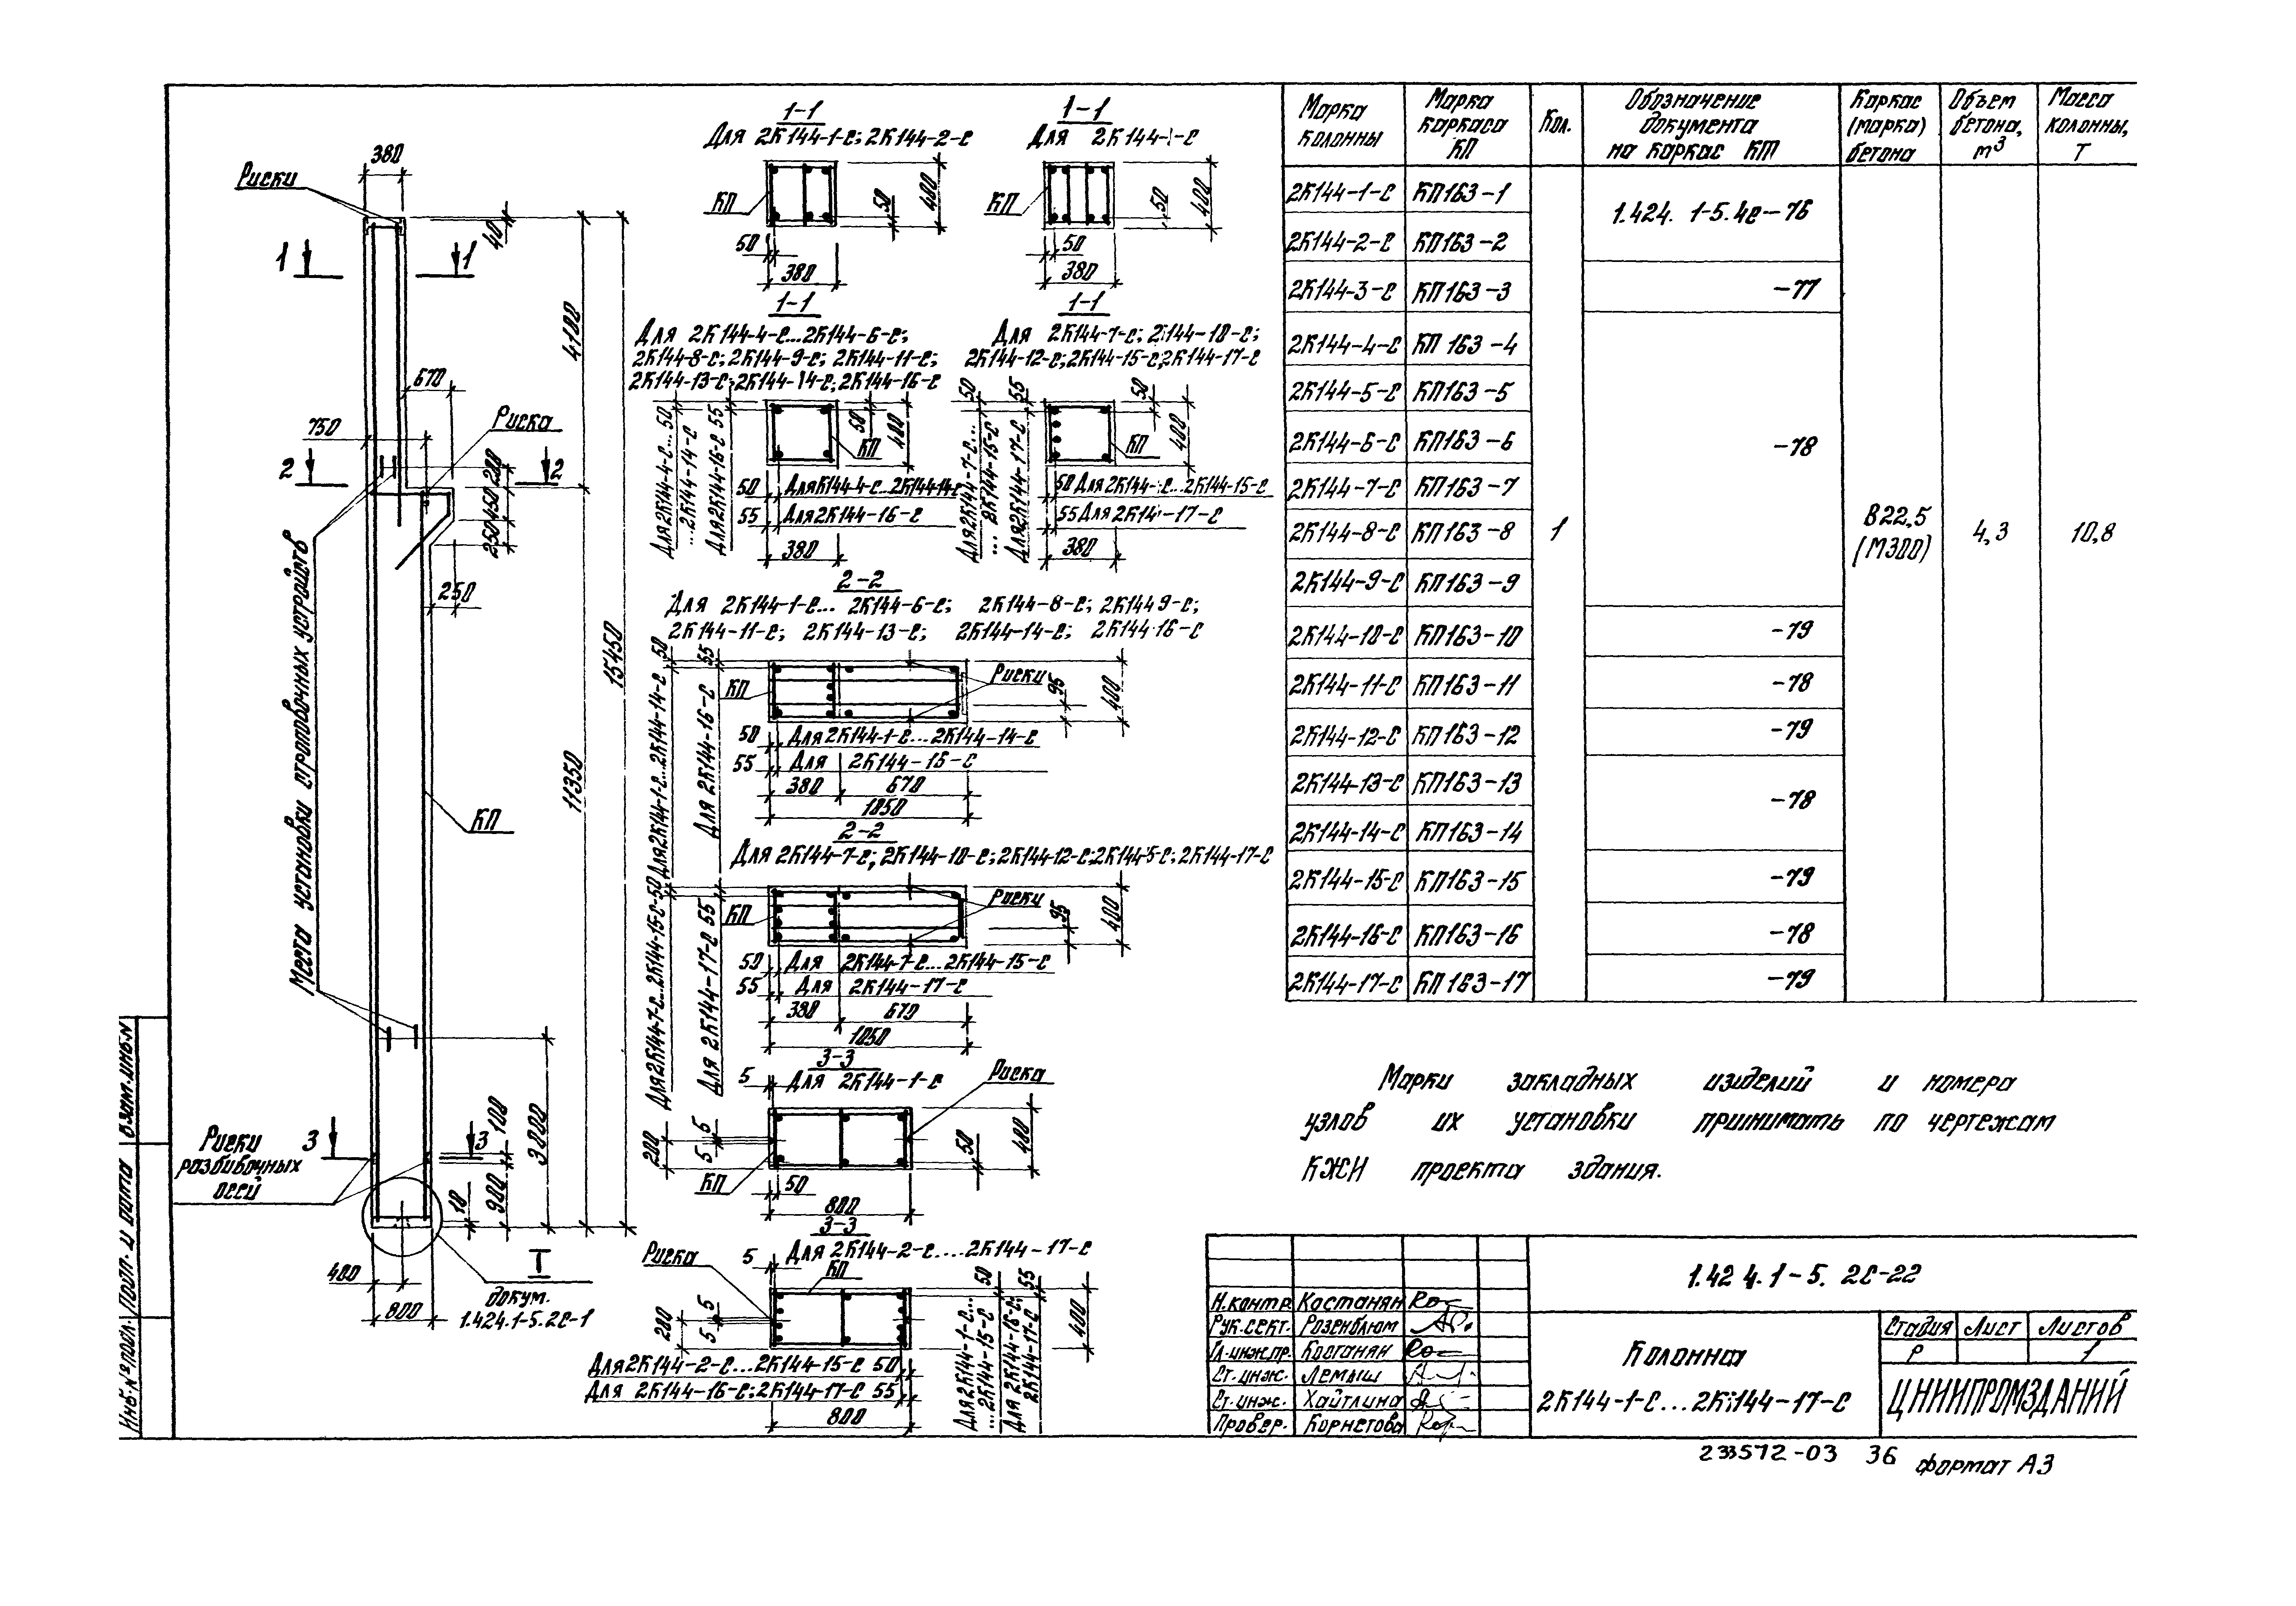 380
Риски
40
1
1
4100
670
750
Риска
2
2
200
450
250
250
Места установки строповочных устройств
15450
11350
КП
Риски разбивочных осей
3
3
100
900
10
3000
400
800
I
докум.
1.424.1-5.2С-1
1-1
Для 2К144-1-С; 2К144-2-С
КП
50
400
50
380
1-1
КП
50
400
50
380
1-1
Для 2К144-4-С...2К144-6-С;
2К144-8-С; 2К144-9-С; 2К144-11-С;
2К144-13-С; 2К144-14-С; 2К144-16-С
Для 2К144-4-С... 50
...2К144-14-С
Для 2К144-16-С 55
50
400
КП
50
55 Для 2К144-16-С
380
1-1
Для 2К144-7-С; 2К144-10-С;
2К144-12-С; 2К144-15-С; 2К144-17-С
Для 2К144-7-С... 50
... 2К144-15-С
Для 2К144-17-С 55
50
400
КП
50
55
380
2-2
Для 2К144-1-С... 2К144-6-С; 2К144-8-С; 2К144 9-С;
2К144-11-С; 2К144-13-С; 2К144-14-С; 2К144 16-С
Для 2К144-1-С...2К144-14-С 50
Для 2К144-16-С 55
КП
Риски
95
400
50 Для 2К144-1-С...2К144-14-С
55 Для 2К144-16-С
380 670
1050
2-2
Для 2К144-7-С; 2К144-10-С; 2К144-12-С; 2К144-17-С
Для 2К144-7-С...2К144-15-С 50
Для 2К144-17-С 55
КП
Риски
95
400
50 Для 2К144-7-С...2К144-15-С
55 Для 2К144-17-С
380 670
1050
3-3
Для 2К144-1-С
5
Риска
200
5 5
КП
50
50
400
800
3-3
Для 2К144-2-С....2К144-17-С
Риска
5
КП
200
5 5
Для 2К144-1-С... 50
...2К144-15-С
Для 2К144-16-С; 55
2К144-17-С
400
Для 2К144-2-С...2К144-15-С 50
Для 2К144-16-С; 2К144-17-С 55
800
Марка колонны
Марка каркаса КП
Кол.
Обозначение документа на каркас КП
Каркас (марка) бетона
Объем бетона, м³
Масса колонны, Т
2К144-1-С КП163-1
1.424. 1-5.4С-76
2К144-2-С КП163-2
2К144-3-С КП163-3 -77
2К144-4-С КП 163-4
2К144-5-С КП163-5
2К144-6-С КП163-6 -78
2К144-7-С КП163-7
2К144-8-С КП163-8 1 В22,5 (М300) 4,3 10,8
2К144-9-С КП163-9
2К144-10-С КП163-10 -79
2К144-11-С КП163-11 -78
2К144-12-С КП163-12 -79
2К144-13-С КП163-13
-78
2К144-14-С КП163-14
2К144-15-С КП163-15 -79
2К144-16-С КП163-16 -78
2К144-17-С КП 163-17 -79
Марки закладных изделий и номера
узлов их установки принимать по чертежам
КЖИ проекта здания.
1.42 4.1-5. 2С-22
Н.контр. Костанян
Рук.сект. Розенблюм
Гл.инж.пр. Костанян
Ст.инж. Лемыш
Ст.инж. Хайтлина
Провер. Корнетова
Колонна
2К144-1-С...2К144-17-С
Стадия Лист Листов
Р 1
ЦНИИПРОМЗДАНИЙ
Инв.№ подл. Подп. и дата Взам.инв.№
233572-03 36 формат А3